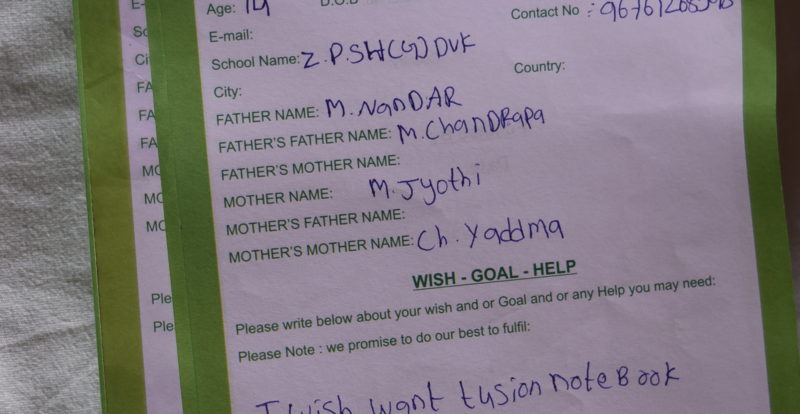 Age: 14 D.O.B
Contact No :
E-mail:
School Name: Z.P.SH(G) DVK
City: Country:
FATHER NAME: M. NanDAR
FATHER'S FATHER NAME: M. ChanDRapa
FATHER'S MOTHER NAME:
MOTHER NAME: M. Jyothi
MOTHER'S FATHER NAME:
MOTHER'S MOTHER NAME: Ch. Yaddma
WISH - GOAL - HELP
Please write below about your wish and or Goal and or any Help you may need:
Please Note : we promise to do our best to fulfil:
I wish want tusion noteBook
E-
Sc
Ci
FA
FA
FA
MO
MO
MO
Ple
Ple